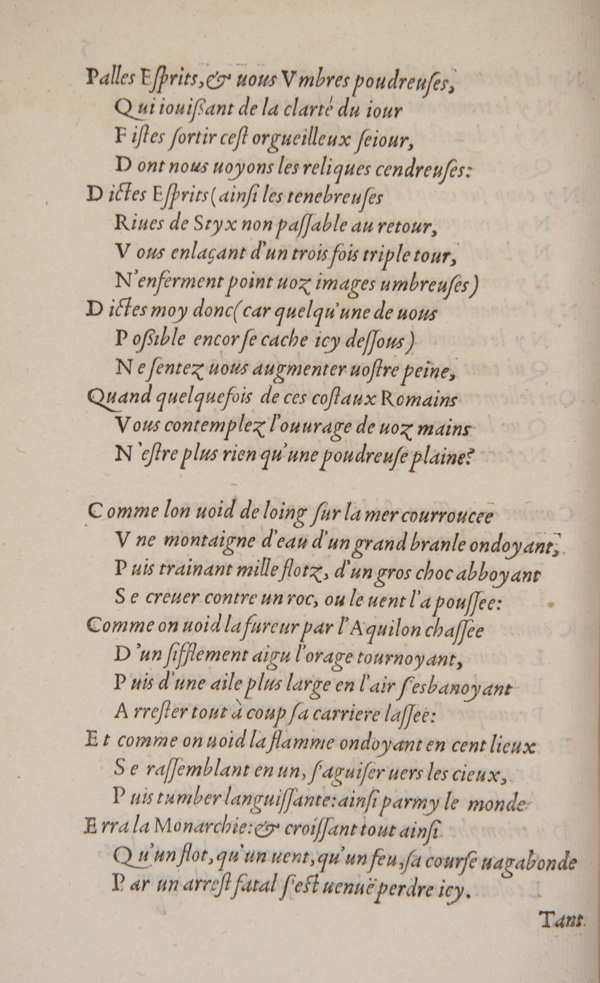 Palles Eſprits, & uous Vmbres poudreuſes,
Qui iouißant de la clarté du iour
Fiſtes ſortir ceſt orgueilleux ſeiour,
Dont nous uoyons les reliques cendreuſes:
Dictes Eſprits (ainſi les tenebreuſes
Riues de Styx non paſſable au retour,
Vous enlaçant d'un trois fois triple tour,
N'enferment point uoz images umbreuſes)
Dictes moy donc (car quelqu'une de uous
Poßible encor ſe cache icy deſſous)
Ne ſentez uous augmenter uoſtre peine,
Quand quelquefois de ces coſtaux Romains
Vous contemplez l'ouurage de uoz mains
N'eſtre plus rien qu'une poudreuſe plaine?
Comme lon uoid de loing ſur la mer courroucee
Vne montaigne d'eau d'un grand branle ondoyant,
Puis trainant mille flotz, d'un gros choc abboyant
Se creuer contre un roc, ou le uent l'a pouſſee:
Comme on uoid la fureur par l'Aquilon chaſſee
D'un ſifflement aigu l'orage tournoyant,
Puis d'une aile plus large en l'air s'esbanoyant
Arreſter tout à coup ſa carriere laſſee:
Et comme on uoid la flamme ondoyant en cent lieux
Se raſſemblant en un, s'aguiſer uers les cieux,
Puis tumber languiſſante: ainſi parmy le monde
Erra la Monarchie: & croiſſant tout ainſi
Qu'un flot, qu'un uent, qu'un feu, ſa courſe uagabonde
Par un arreſt fatal s'eſt uenuë perdre icy.
Tant